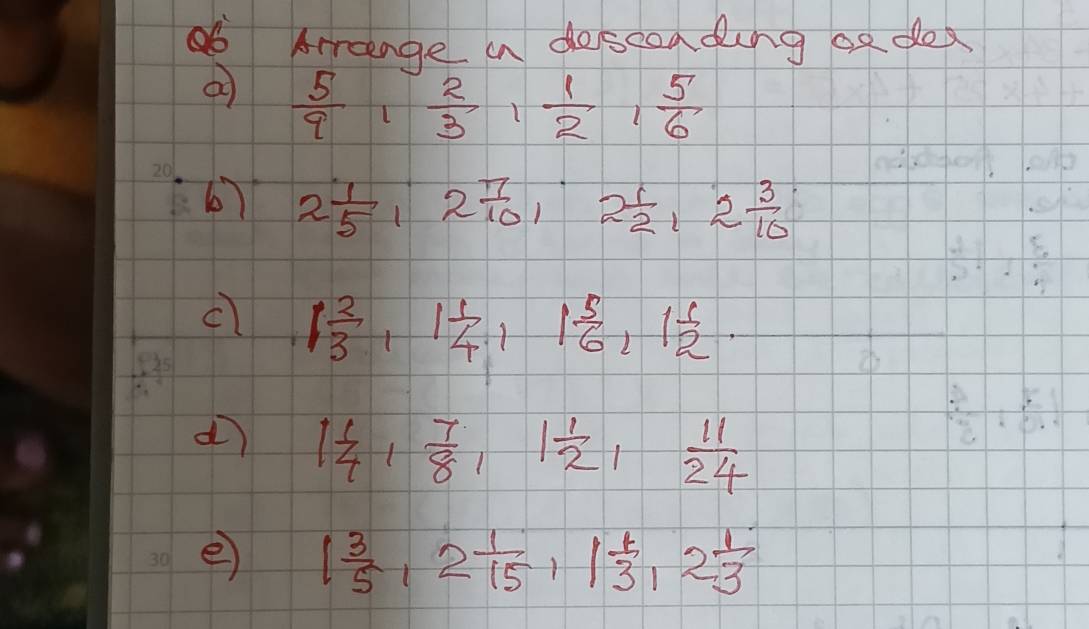 Q6 Arrange in descending order
a) 5/9, 2/3, 1/2, 5/6
20
b) 2 1/5, 2 7/10, 2 1/2, 2 3/10
c) 1 2/3, 1 1/4, 1 5/6, 1 1/2.
25
d) 1 1/4, 7/8, 1 1/2, 11/24
30 e) 1 3/5, 2 1/15, 1 1/3, 2 1/3